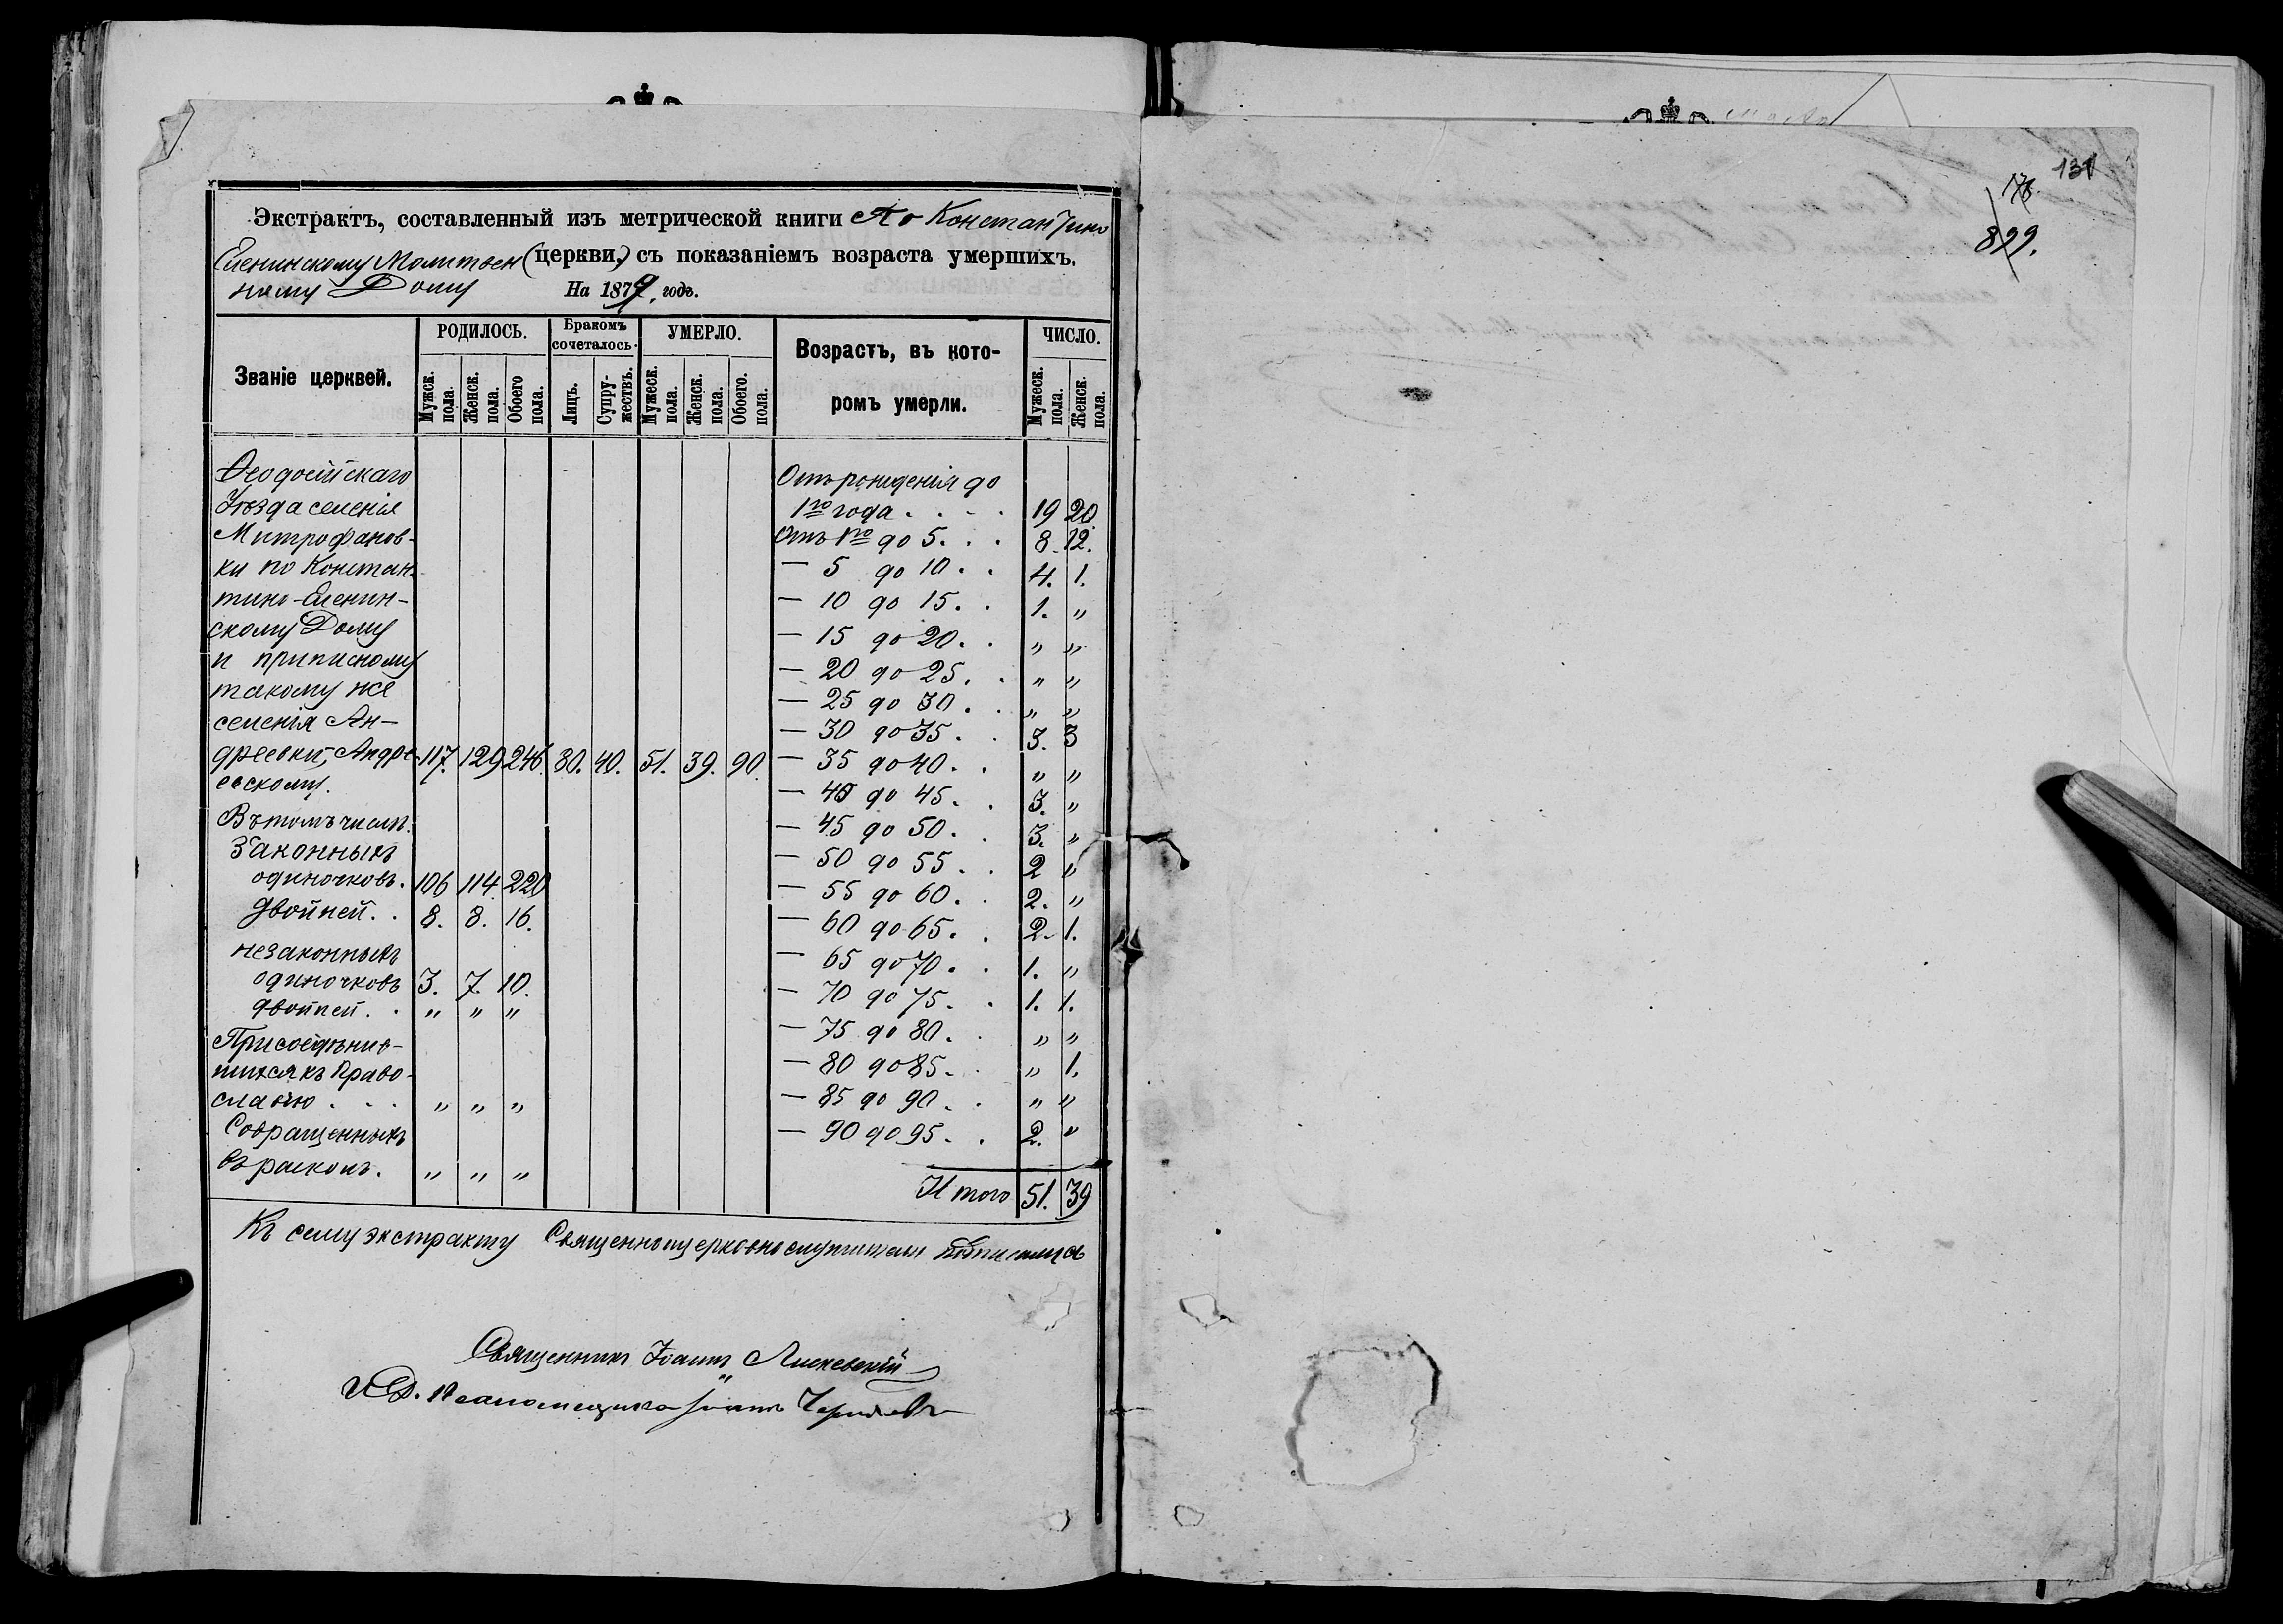 Экстрактъ, составленный изъ метрической книги По Константино
Еленинскому Молитвен (церкви,) съ показаніемъ возраста умершихъ.
ному Дому На 1879, годъ.
Званіе церквей. РОДИЛОСЬ. Бракомъ сочеталось. УМЕРЛО. Возрастъ, въ которомъ умерли. ЧИСЛО.
Мужск. пола. Женск. пола. Обоего пола. Лицъ. Супружествъ. Мужеск. пола. Женск. пола. Обоего. пола. Мужеск. пола. Женск. пола.
Ѳеодосійскаго
Уѣзда селенія
Митрофанов-
ки по Констан-
тино-Еленин-
скому Дому
и приписному
такому же
селенія Ан-
дреевки, Андре- 117. 129 246. 80. 40. 51. 39. 90.
евскому.
Въ томъ числѣ.
Законныхъ
одиночковъ. 106 114 220
двойней. . 8. 8. 16.
незаконныхъ
одиночковъ 3. 7. 10.
двойней. . " " "
Присоединив-
шихся къ Право-
славію . . . " " "
Совращенныхъ
въ расколъ. " " "
Отъ рожденія до
1го года . . . . 19 20.
Отъ 1го до 5. . . 8. 12.
— 5 до 10 . . 4. 1.
— 10 до 15. . 1. "
— 15 до 20. . " "
— 20 до 25. . " "
— 25 до 30 . . " "
— 30 до 35 . . 3. 3
— 35 до 40. . " "
— 40 до 45. . 3. "
— 45 до 50. . 3. "
— 50 до 55 . . 2 "
— 55 до 60. . 2. "
— 60 до 65. . 2. 1.
— 65 до 70. . 1. "
— 70 до 75. . 1. 1.
— 75 до 80. . " "
— 80 до 85. . " 1.
— 85 до 90. . " "
— 90 до 95. . 2. "
Итого 51. 39
Къ сему экстракту Священноцерковнослужители
Священникъ Іоаннъ
И. Д. Псаломщика
131
899.